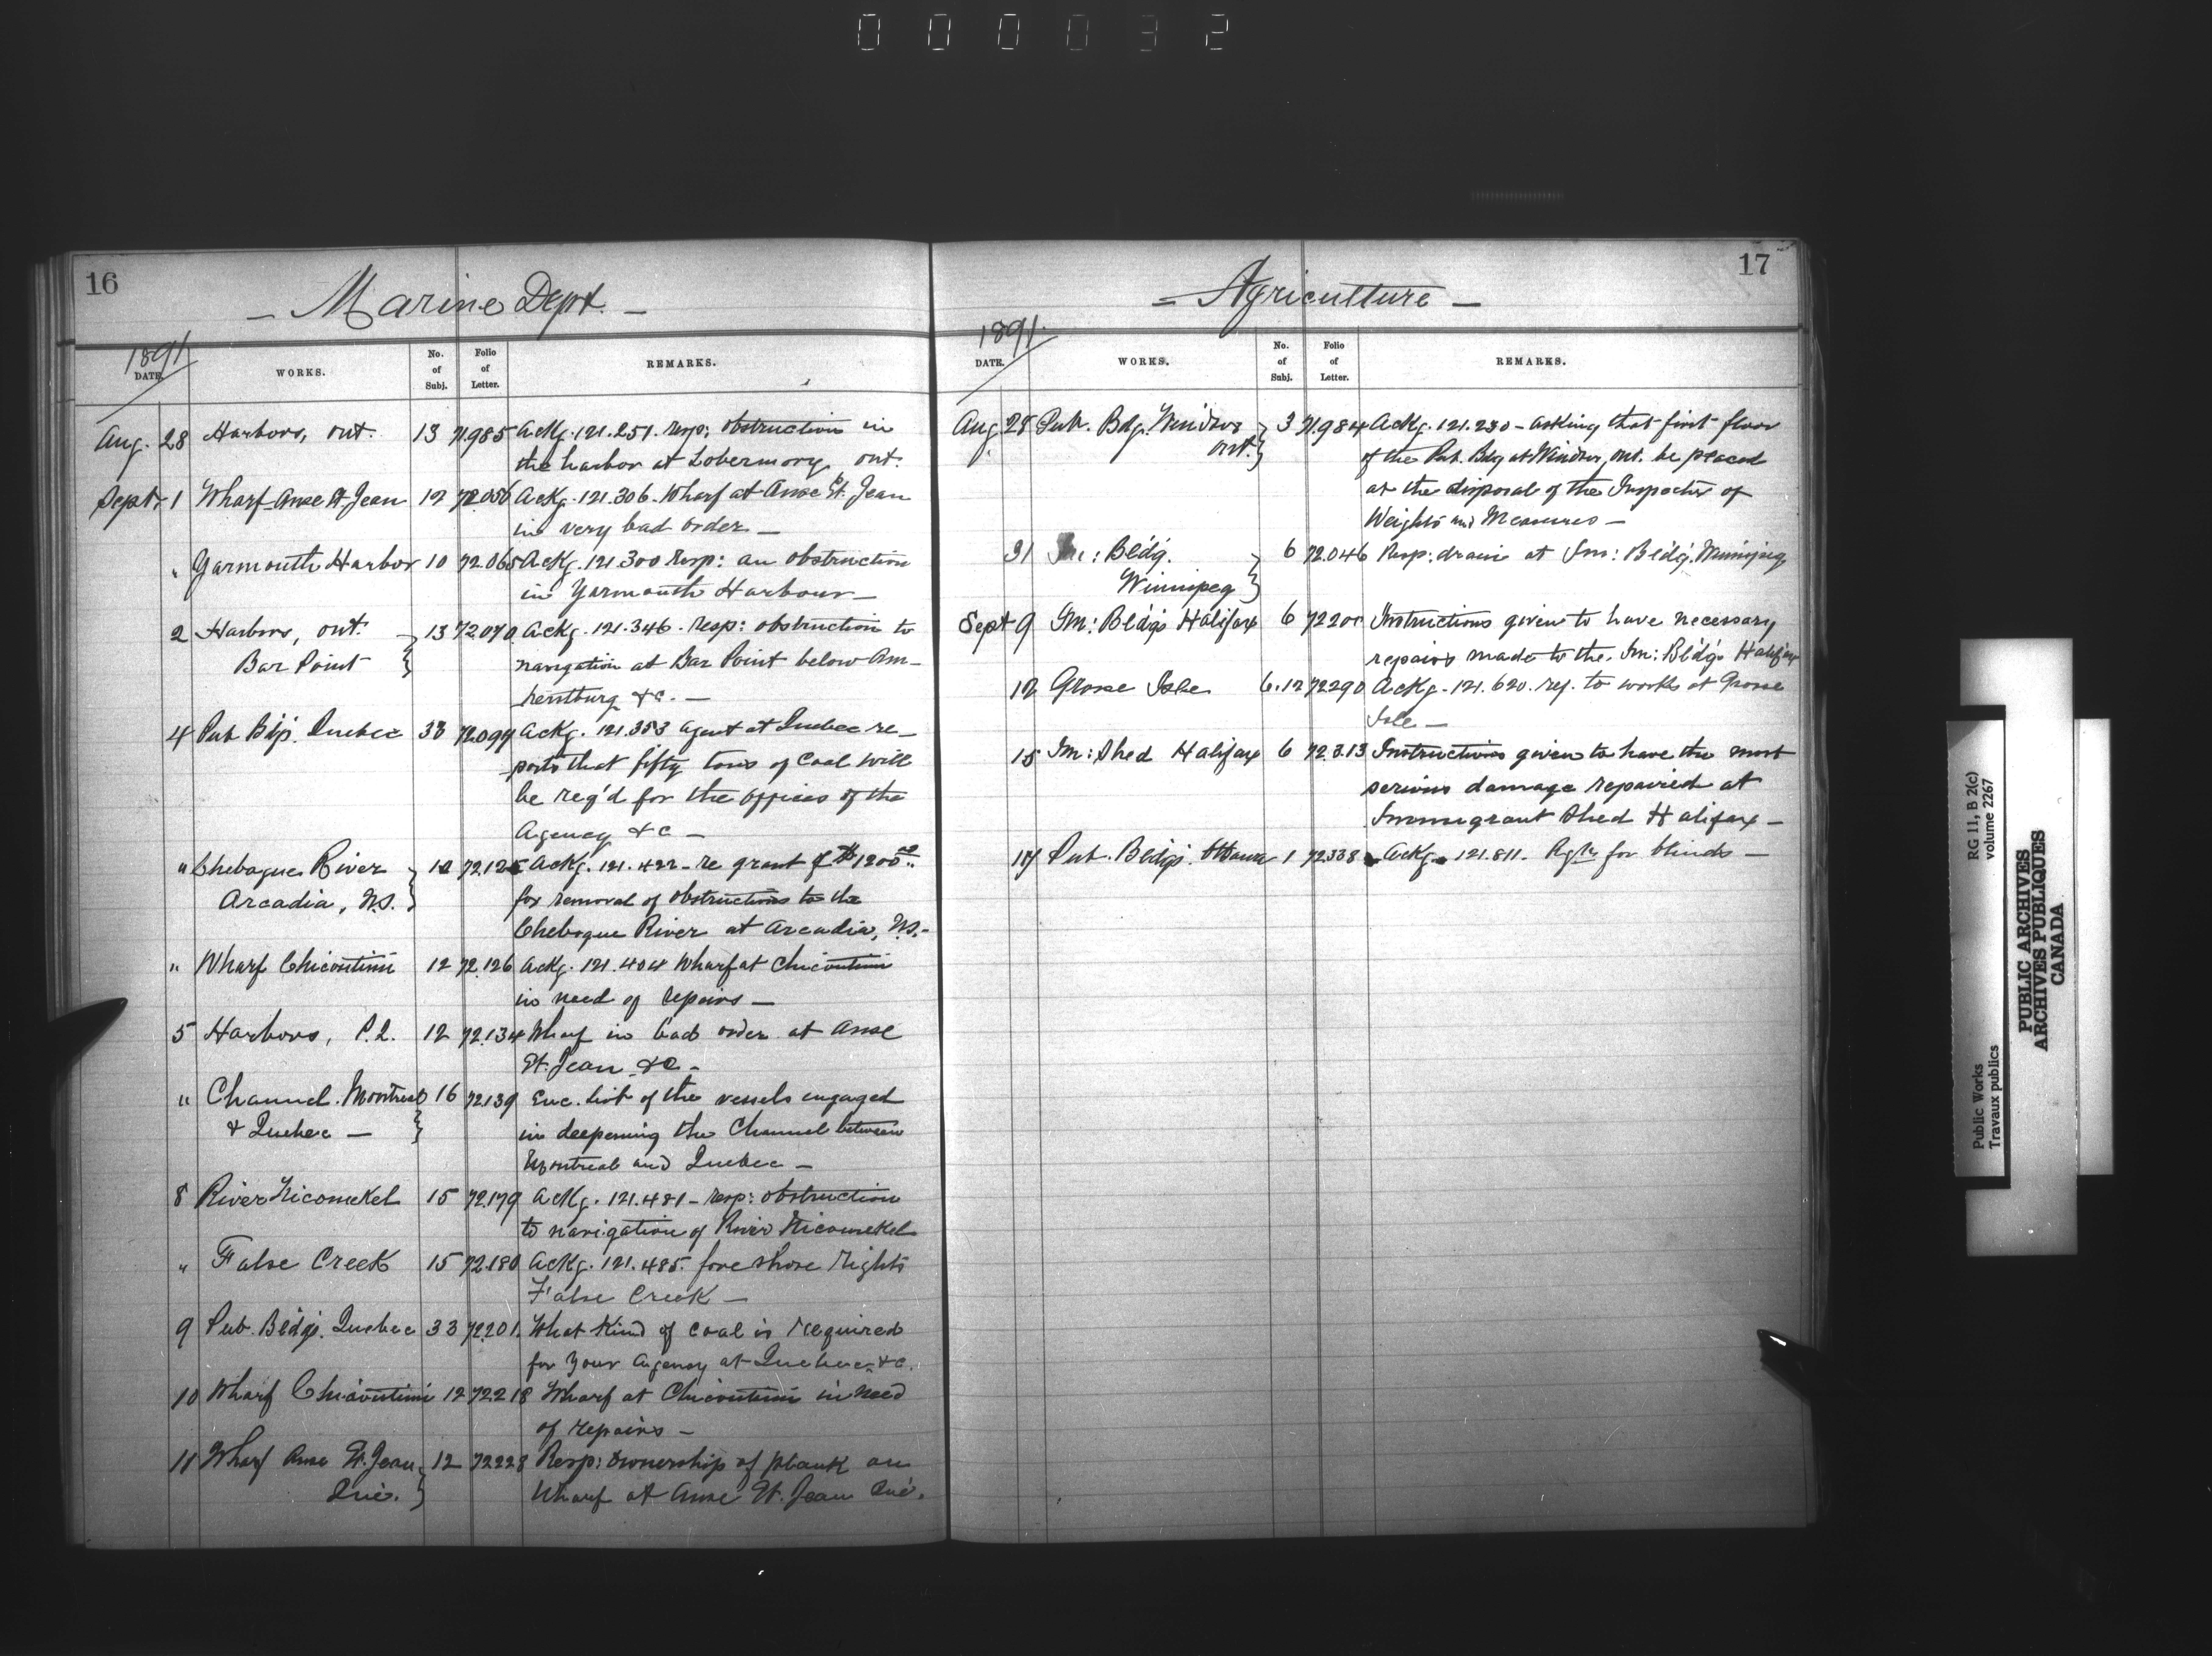 000032
16
— Marine Dept. —
1891
DATE. WORKS. No. of Subj. Folio of Letter. REMARKS.
Aug. 28 Harbors, Ont. 13 71.985 Ackg. 121.251. resp: obstruction in
the harbor at Tobermory, Ont.
Sept. 1 Wharf Anse St. Jean 12 72.056 Ackg. 121.306. Wharf at Anse St. Jean
in very bad order —
" Yarmouth Harbor 10 72.065 Ackg. 121.300 resp: an obstruction
in Yarmouth Harbour —
2 Harbors, Ont. 13 72.070 Ackg. 121.346. resp: obstruction to
Bar Point } navigation at Bar Point below Am-
herstburg &c. —
4 Pub Bldgs. Quebec 33 72.094 Ackg. 121.353 agent at Quebec re-
ports that fifty tons of Coal will
be req'd for the offices of the
Agency &c —
" Chebogue River } 12 72.125 Ackg. 121.422 — re grant of $1200.00
Arcadia, N.S. } for removal of obstructions to the
Chebogue River at Arcadia, N.S. —
" Wharf Chicoutimi 12 72.126 Ackg. 121.404 Wharf at Chicoutimi
in need of repairs —
5 Harbors, P.Q. 12 72.134 Wharf in bad order at Anse
St. Jean &c —
" Channel. Montreal 16 72139 Enc. list of the vessels engaged
& Quebec — } in deepening the Channel between
Montreal and Quebec —
8 River Nicomekel 15 72.179 Ackg. 121.481 — resp: obstruction
to navigation of River Nicomekel
" False Creek 15 72.180 Ackg. 121.485. fore shore rights
False Creek —
9 Pub. Bldgs. Quebec 33 72.201. What kind of coal is required
for your agency at Quebec &c.
10 Wharf Chicoutimi 12 72218 Wharf at Chicoutimi in need
of repairs —
11 Wharf Anse St. Jean } 12 72228 Resp: ownership of plank on
Que. } Wharf at Anse St. Jean Que.
17
— Agriculture —
1891
DATE. WORKS. No. of Subj. Folio of Letter. REMARKS.
Aug. 28 Pub. Bdg. Windsor } 3 71.984 Ackg. 121.230 — asking that first floor
Ont. } of the Pub. Bdg at Windsor, Ont. be placed
at the disposal of the Inspector of
Weights and Measures —
31 Im: Bldg. } 6 72.046 Resp: drain at Im: Bldg. Winnipeg
Winnipeg }
Sept 9 Im: Bldgs Halifax 6 72200 Instructions given to have necessary
repairs made to the Im: Bldgs Halifax
12 Grosse Isle 6.12 72290 Ackg. 121.620. ref. to works at Grosse
Isle —
15 Im: Shed Halifax 6 72.313 Instructions given to have the most
serious damage repaired at
Immigrant Shed Halifax —
17 Pub. Bldgs. Ottawa 1 72338 Ackg. 121.811. Rqtn for blinds —
Public Works
Travaux publics
RG 11, B 2(c)
volume 2267
PUBLIC ARCHIVES
ARCHIVES PUBLIQUES
CANADA